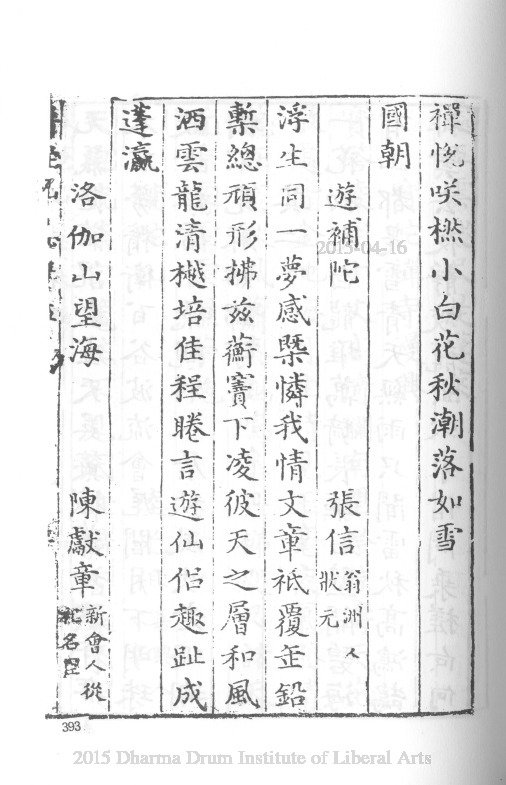 禪悅咲橪小白花秋潮落如雪
國朝
遊補陀 張信 翁洲人狀元
浮生同一夢感槩憐我情文章祗覆缶鉛
槧總頑形拂茲蘅寶下凌彼天之層和風
洒雲龍清樾培佳程睠言遊仙侶趣趾成
蓬瀛
洛伽山望海 陳獻章 新會人從祀名臣
2015-04-16
393
2015 Dharma Drum Institute of Liberal Arts